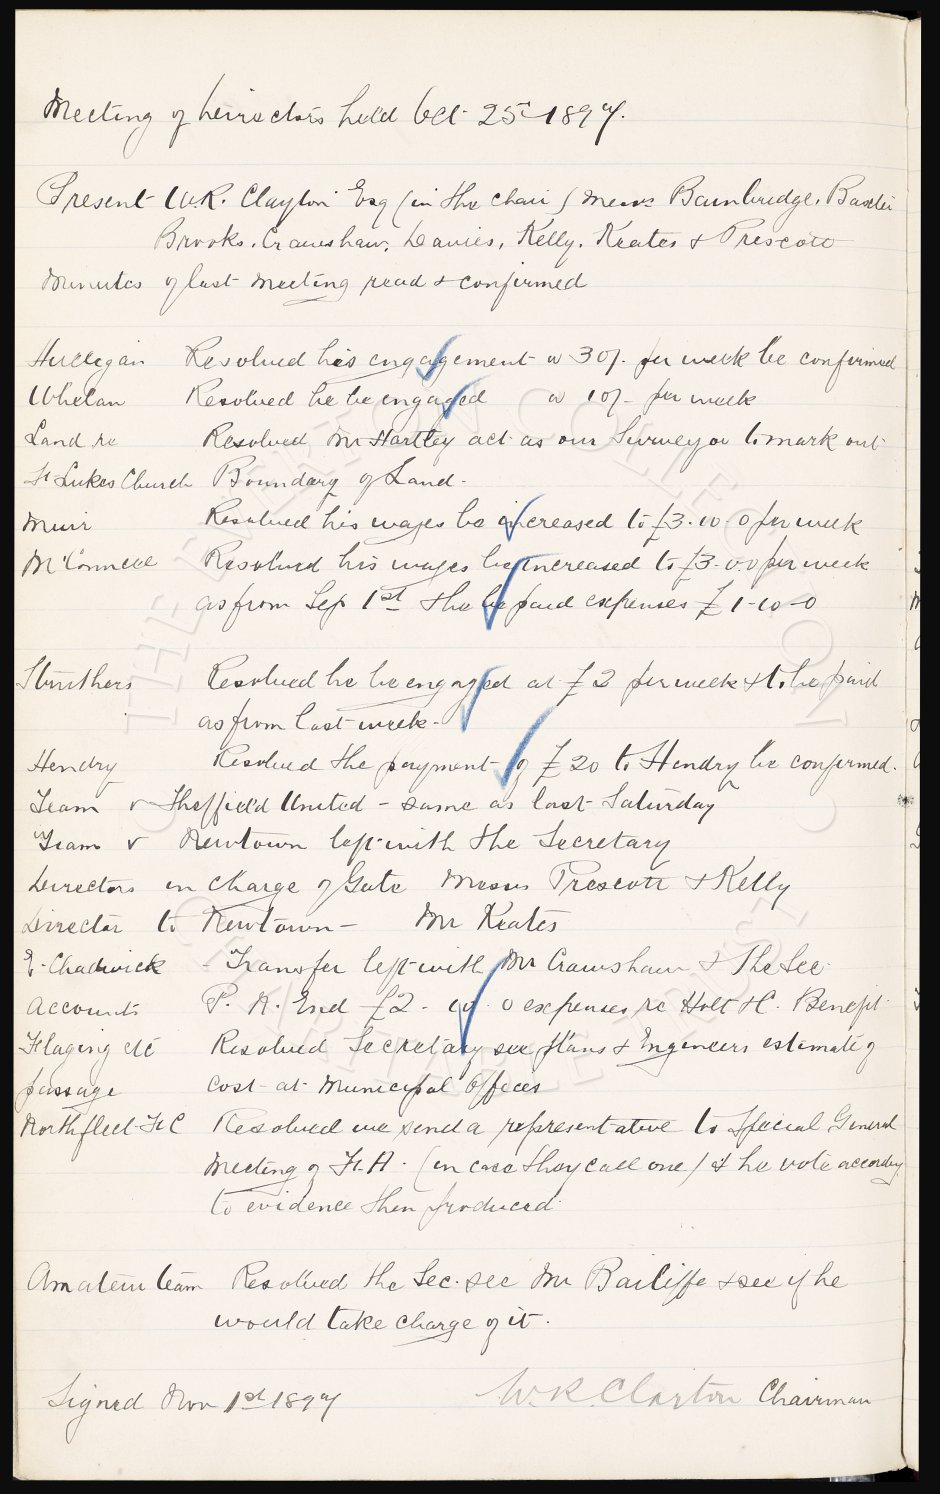 Meeting of Directors held Oct 25th 1897.
Present W.R. Clayton Esq (in the chair) Messrs Bainbridge, Baxter
Brooks, Crawshaw, Davies, Kelly, Keates & Prescott
Minutes of last meeting read & confirmed
Hulligan Resolved his engagement @ 30/- per week be confirmed
Whelan Resolved he be engaged @ 10/- per week
Land re Resolved Mr Hartley act as our Surveyor to mark out
St Lukes Church Boundary of Land.
Muir Resolved his wages be increased to £3-10-0 per week
McConnell Resolved his wages be increased to £3-0-0 per week
as from Sep 1st & he be paid expenses £1-10-0
Struthers Resolved he be engaged at £2 per week & to be paid
as from last week.
Hendry Resolved the payment of £20 to Hendry be confirmed.
Team v Sheffield United - same as last Saturday
Team v Newtown left with the Secretary
Directors in charge of Gate Messrs Prescott & Kelly
Director to Newtown - Mr Keates
E. Chadwick - Transfer left with Mr Crawshaw & The Sec.
Accounts P. R. End £2-10-0 expenses re Holt & C. Benefit
Flaging etc Resolved Secretary see plans & Engineers estimate of
passage cost at Municipal Offices
Northfleet F.C Resolved we send a representative to Special General
Meeting of F.A. (in case they call one) & he vote according
to evidence then produced
Amateur team Resolved the Sec. see Mr Bailiffe & see if he
would take charge of it.
Signed Nov 1st 1897 W.R. Clayton Chairman
THE EVERTON COLLECTION
CHARITABLE TRUST